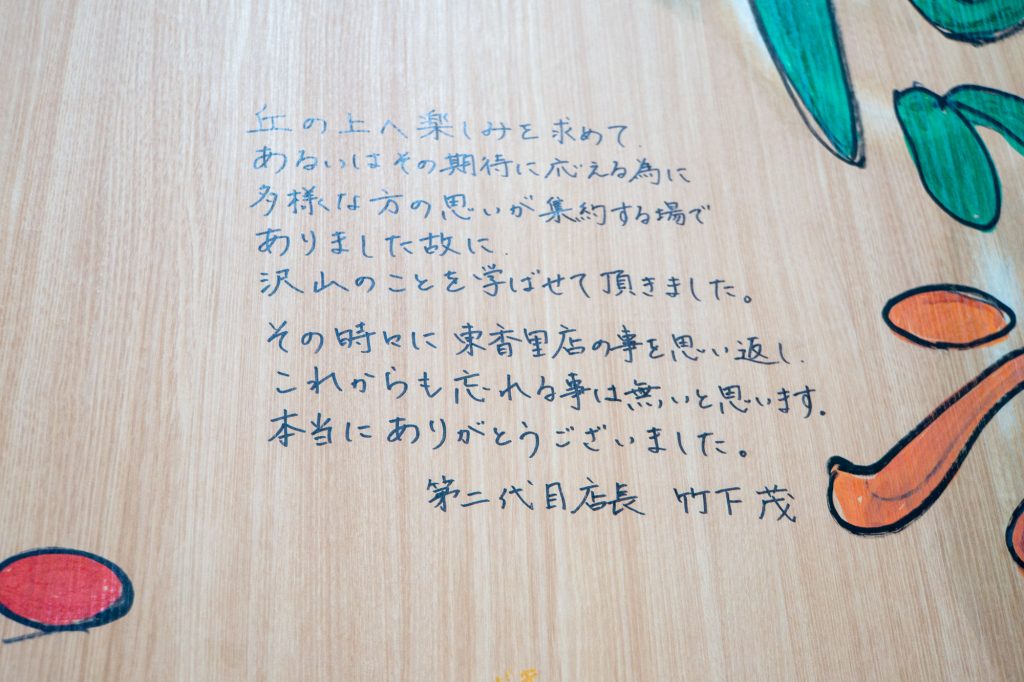 丘の上へ楽しみを求めて、
あるいはその期待に応える為に
多様な方の思いが集約する場で
ありました故に、
沢山のことを学ばせて頂きました。
その時々に東香里店の事を思い返し、
これからも忘れる事は無いと思います。
本当にありがとうございました。
第二代目店長 竹下茂